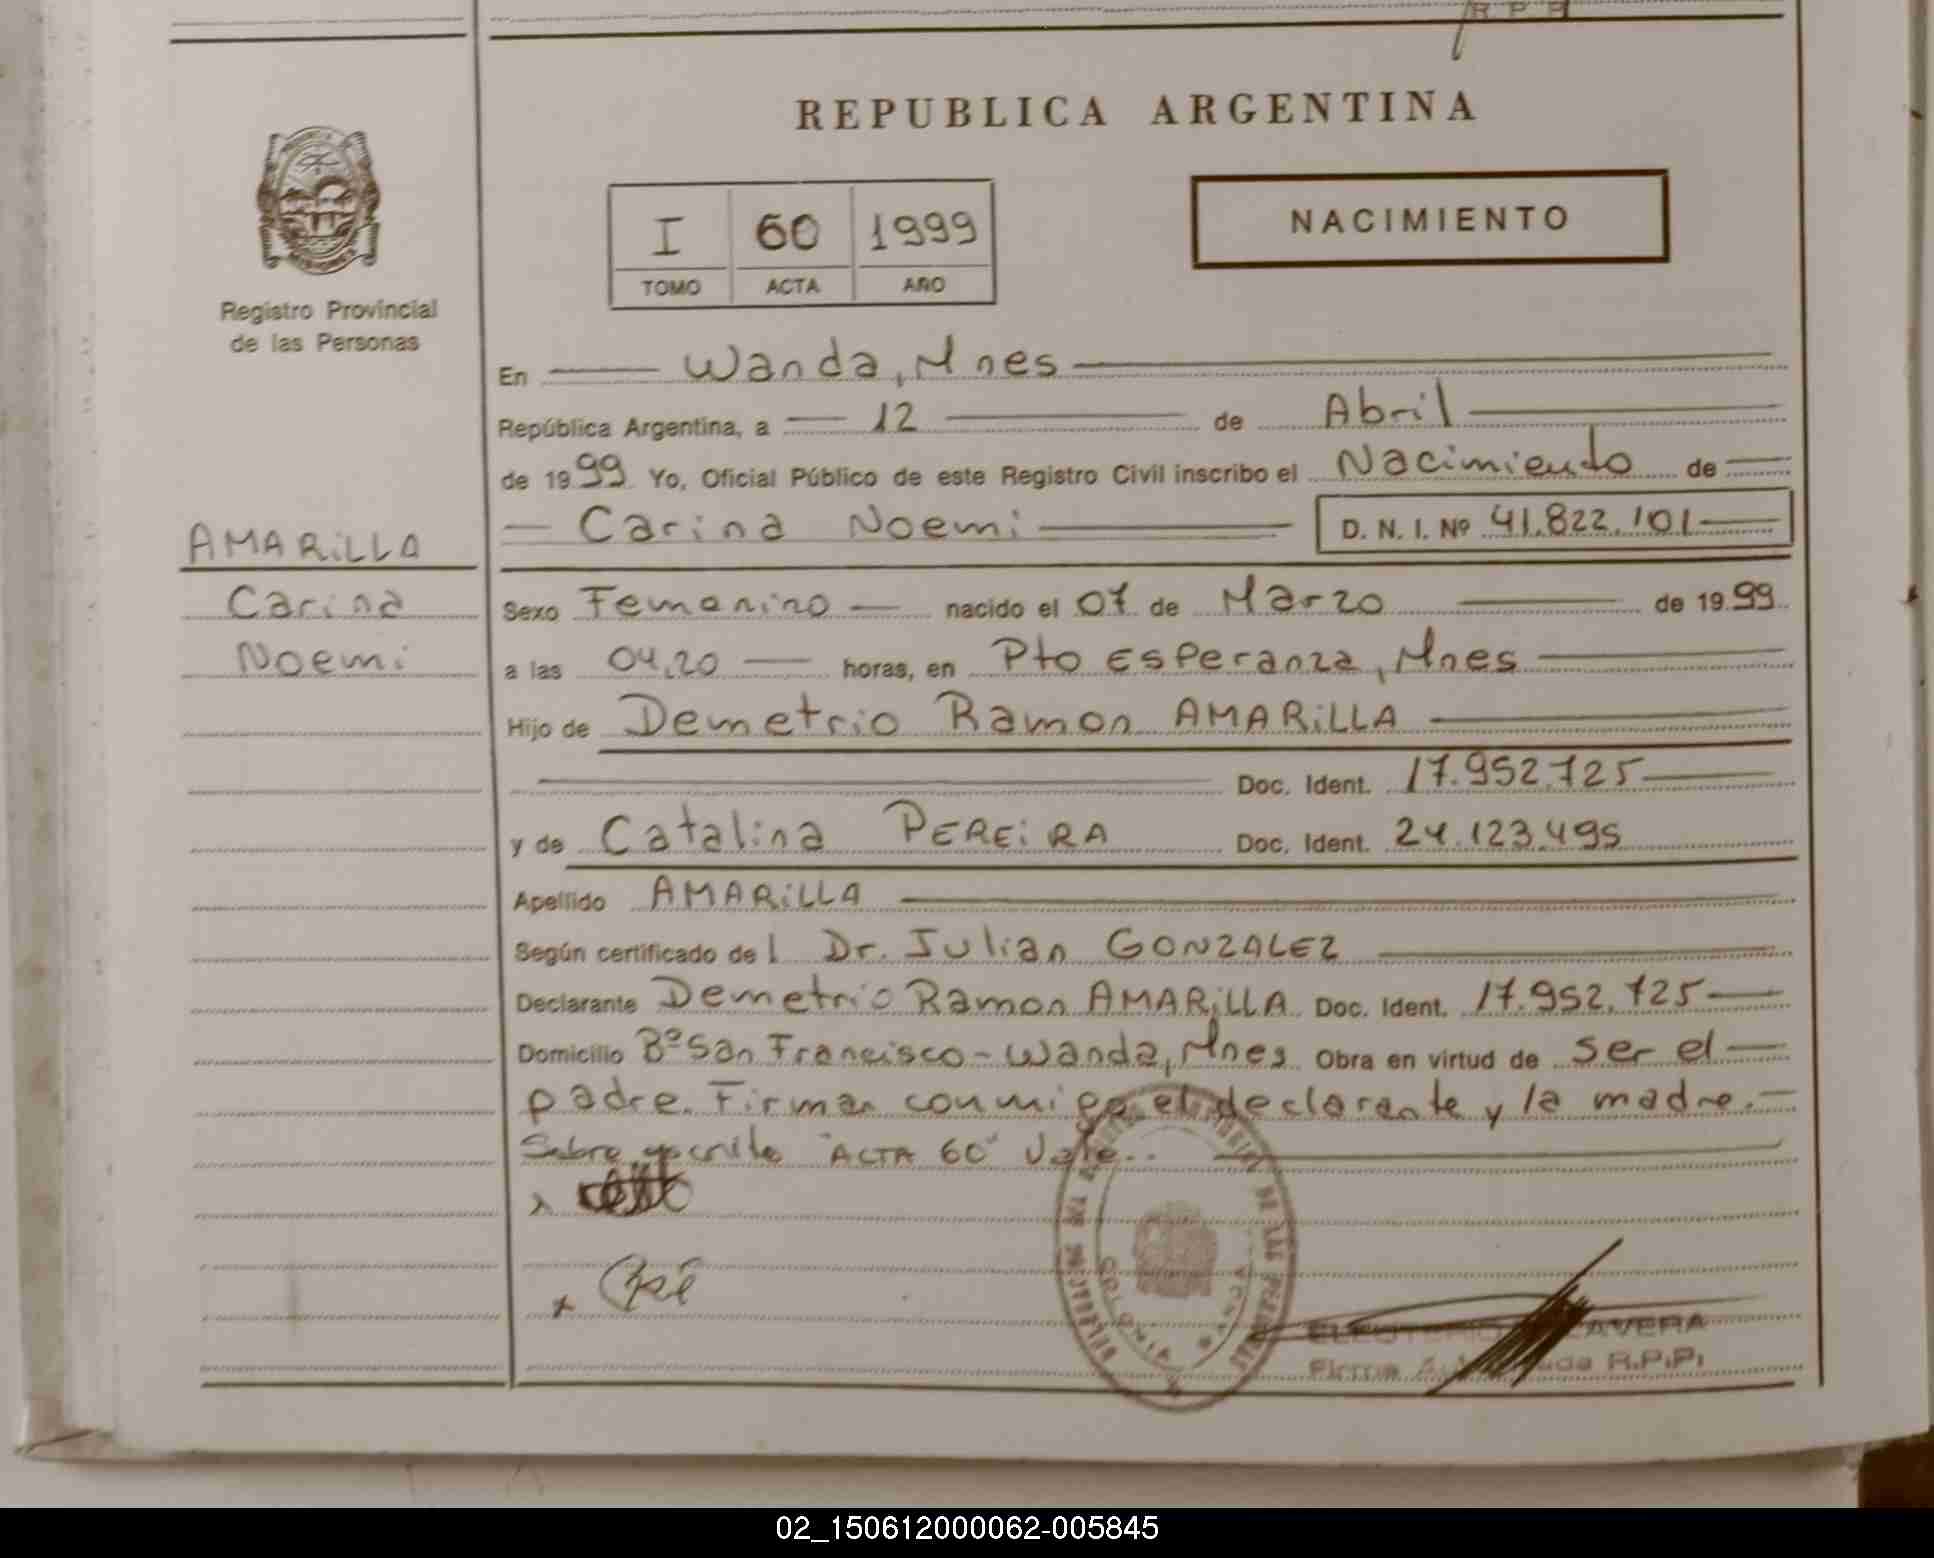 R P P
REPUBLICA ARGENTINA
I 60 1999
TOMO ACTA AÑO
NACIMIENTO
MISIONES
Registro Provincial
de las Personas
AMARiLLA
Carina
Noemi
En Wanda, Mnes
República Argentina, a 12 de Abril
de 1999 Yo, Oficial Público de este Registro Civil inscribo el Nacimiento de
Carina Noemi D. N. I. Nº 41.822.101
Sexo Femenino nacido el 07 de Marzo de 1999
a las 04,20 horas, en Pto Esperanza, Mnes
Hijo de Demetrio Ramon AMARiLLA
Doc. Ident. 17.952.725
y de Catalina PEREiRA Doc. Ident. 24.123.495
Apellido AMARiLLA
Según certificado del Dr. Julian GONZALEZ
Declarante Demetrio Ramon AMARiLLA Doc. Ident. 17.952.725
Domicilio Bº San Francisco - Wanda, Mnes Obra en virtud de ser el
padre. Firman conmigo el declarante y la madre.
Sobre escrito "ACTA 60" Vale..
x
x
COLONIA WANDA
DE LAS PERSONAS
Firma R.P.P.
02_150612000062-005845